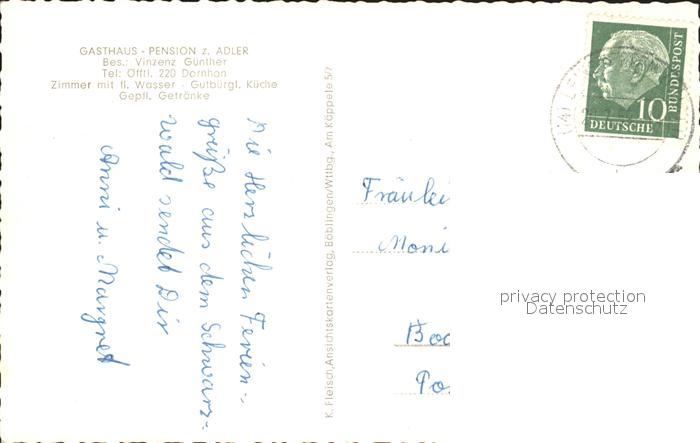 GASTHAUS - PENSION z. ADLER
Bes.: Vinzenz Günther
Tel: Öfftl. 220 Dornhan
Zimmer mit fl. Wasser - Gutbürgl. Küche
Gepfl. Getränke
Die Herzlichen Ferien-
grüße aus dem Schwarz-
wald sendet Dir
Anni u. Margret
K. Fleisch, Ansichtskartenverlag, Böblingen/Wttbg., Am Käppele 5/7
DEUTSCHE
BUNDESPOST
10
Fräulei
Moni
privacy protection
Datenschutz